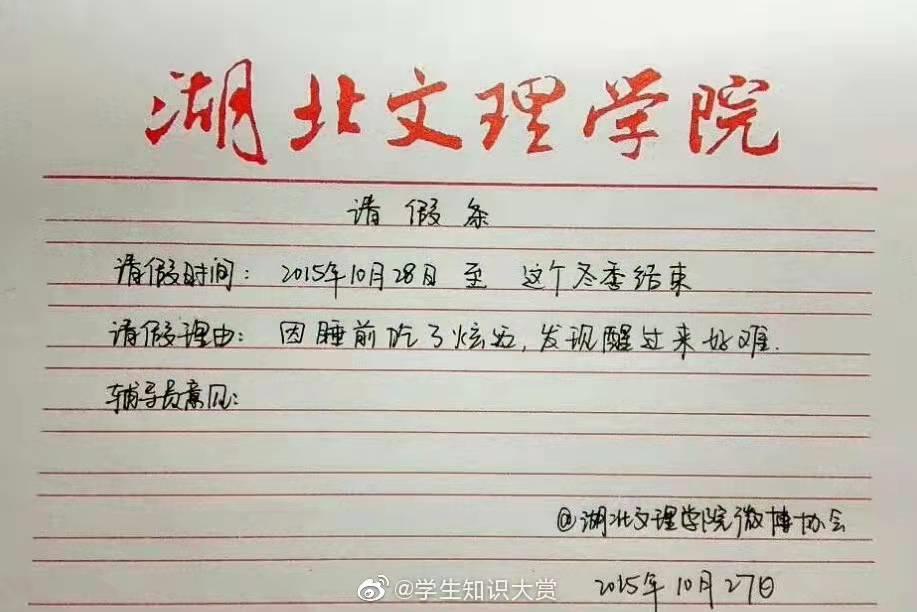 湖北文理学院
请假条
请假时间：2015年10月28日 至 这个冬季结束
请假理由：因睡前吃了炫迈，发现醒过来好难.
辅导员意见：
@湖北文理学院微博协会
2015年10月27日
@学生知识大赏